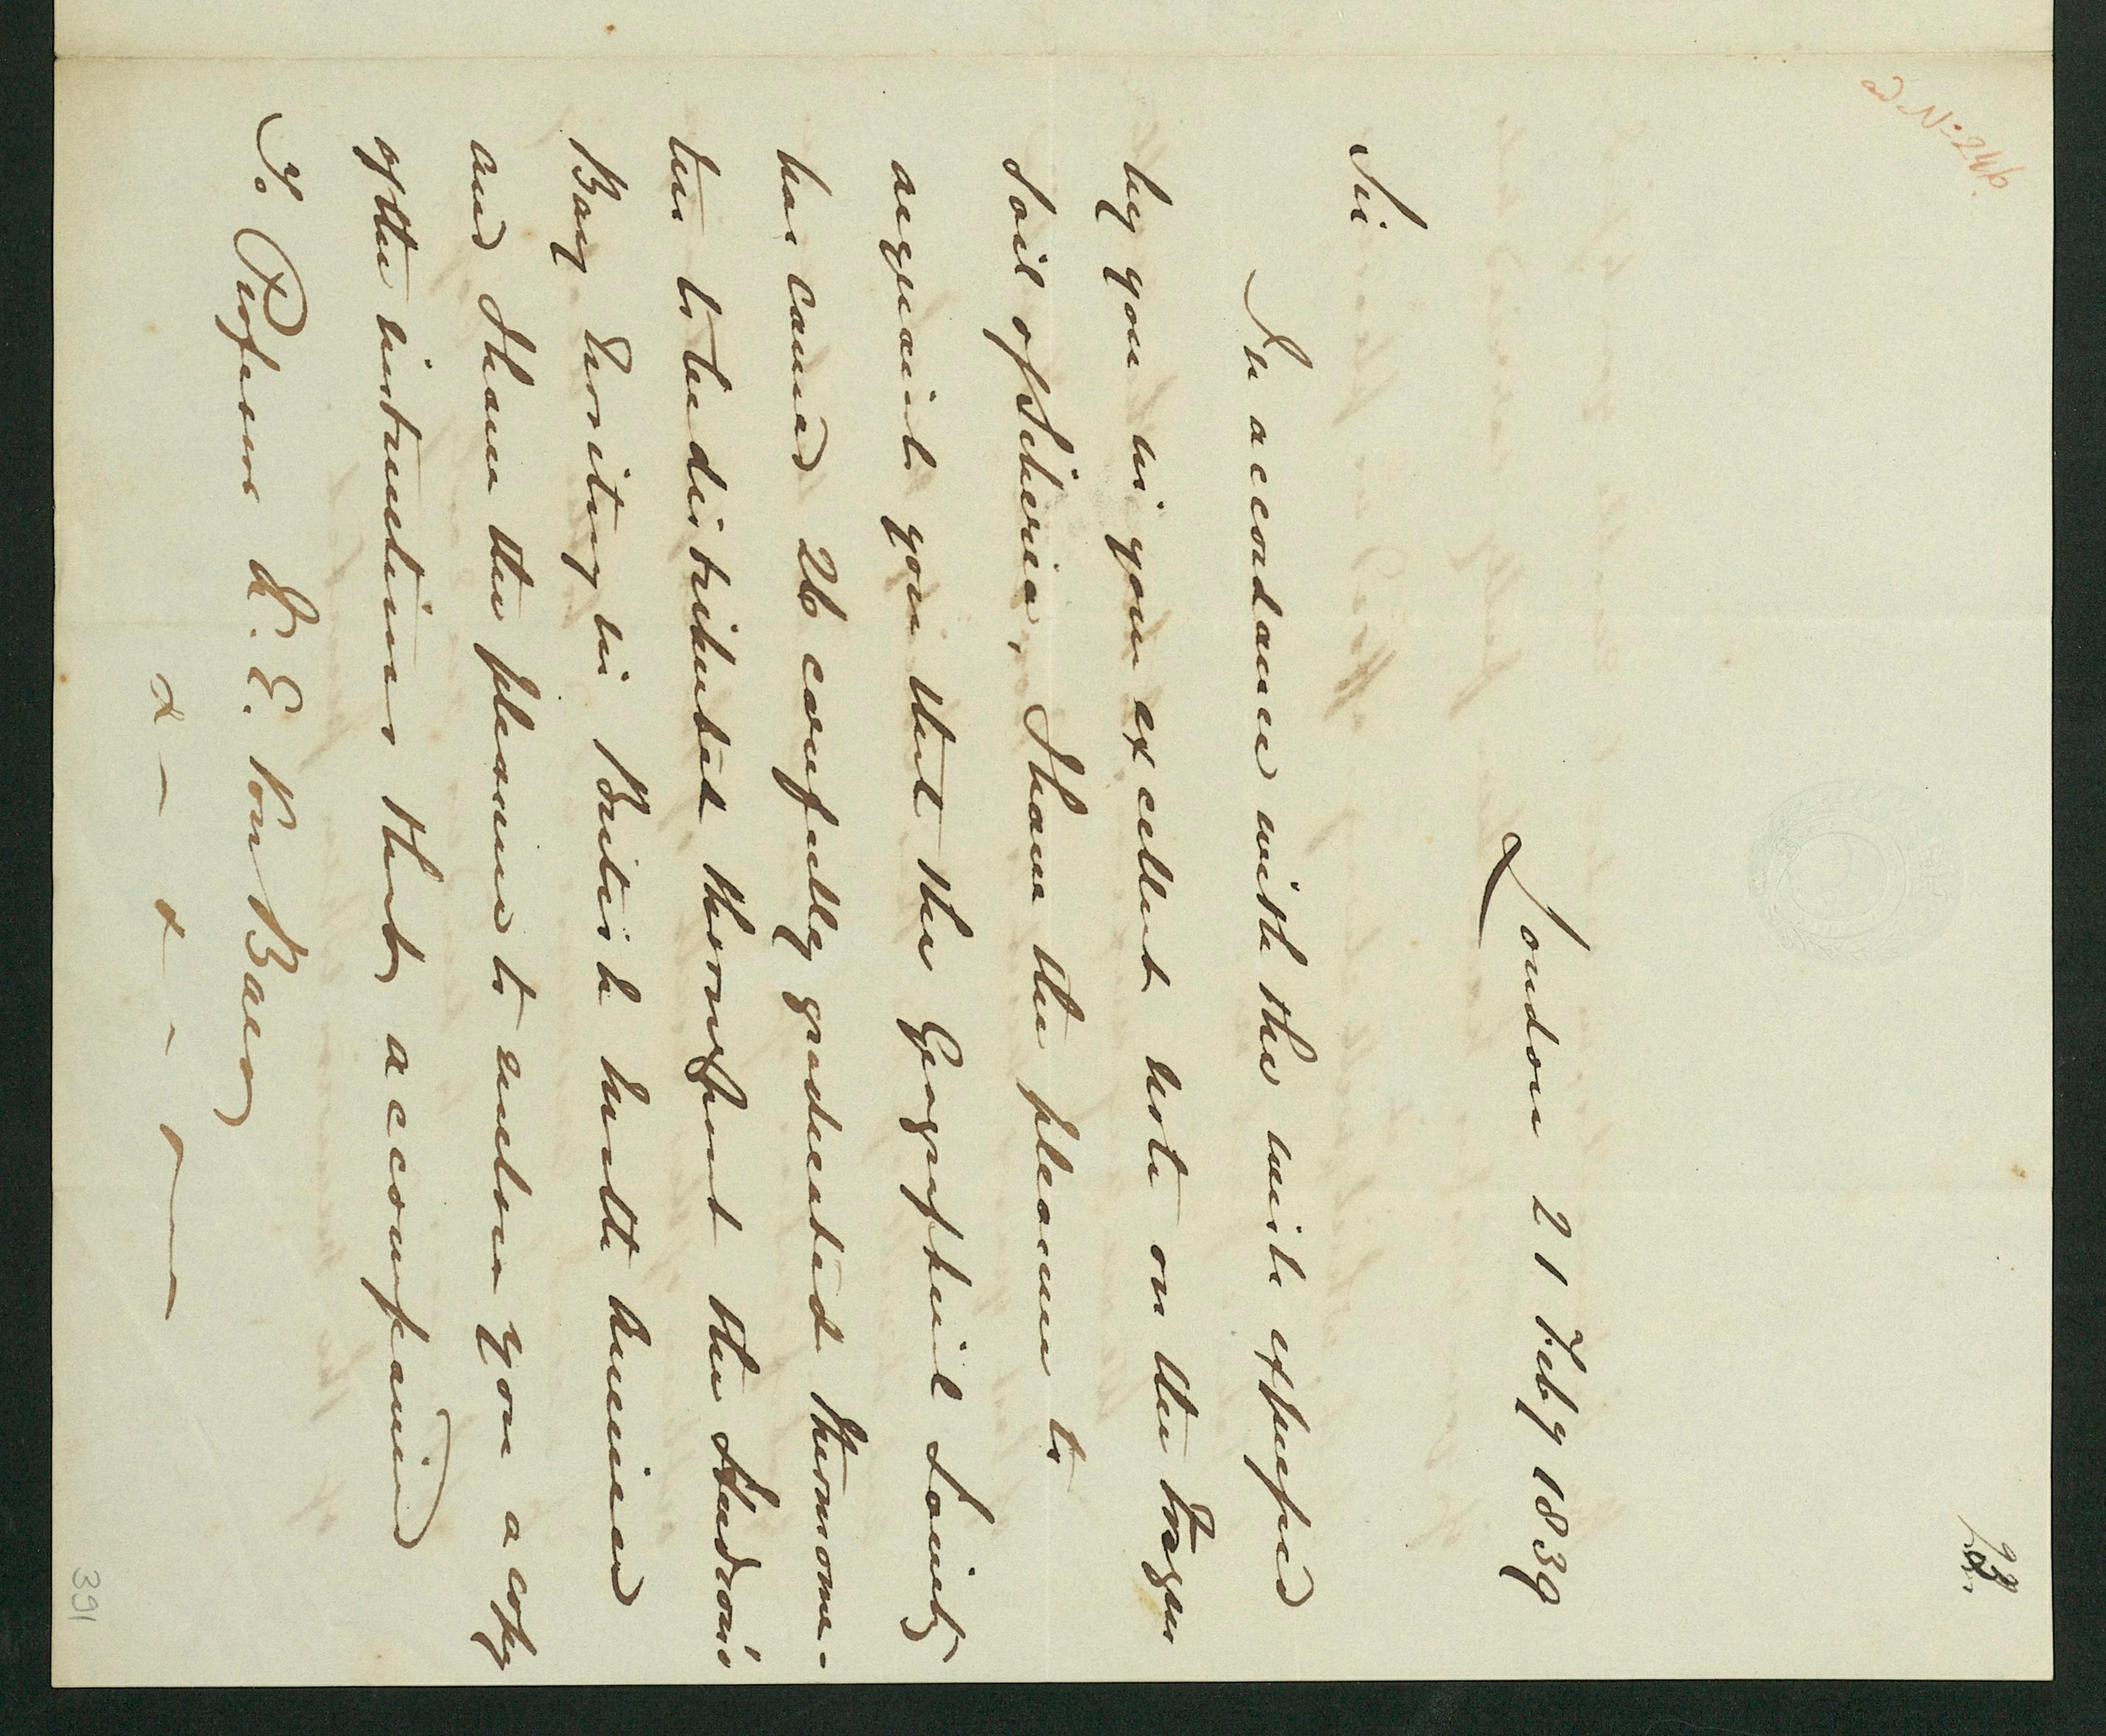 ad N: 246.
London 21 Feby 1839
Sir
In accordance with the wish expressed
by you in your excellent note on the Frozen
Soil of Siberia, I have the pleasure to
acquaint you that the Geographical Society
has caused 26 carefully graduated thermome-
ters to be distributed throughout the Hudson's
Bay Territory in British North America
and I have the pleasure to enclose you a copy
of the instructions that accompanied
To Professor K. E. Von Baer
391